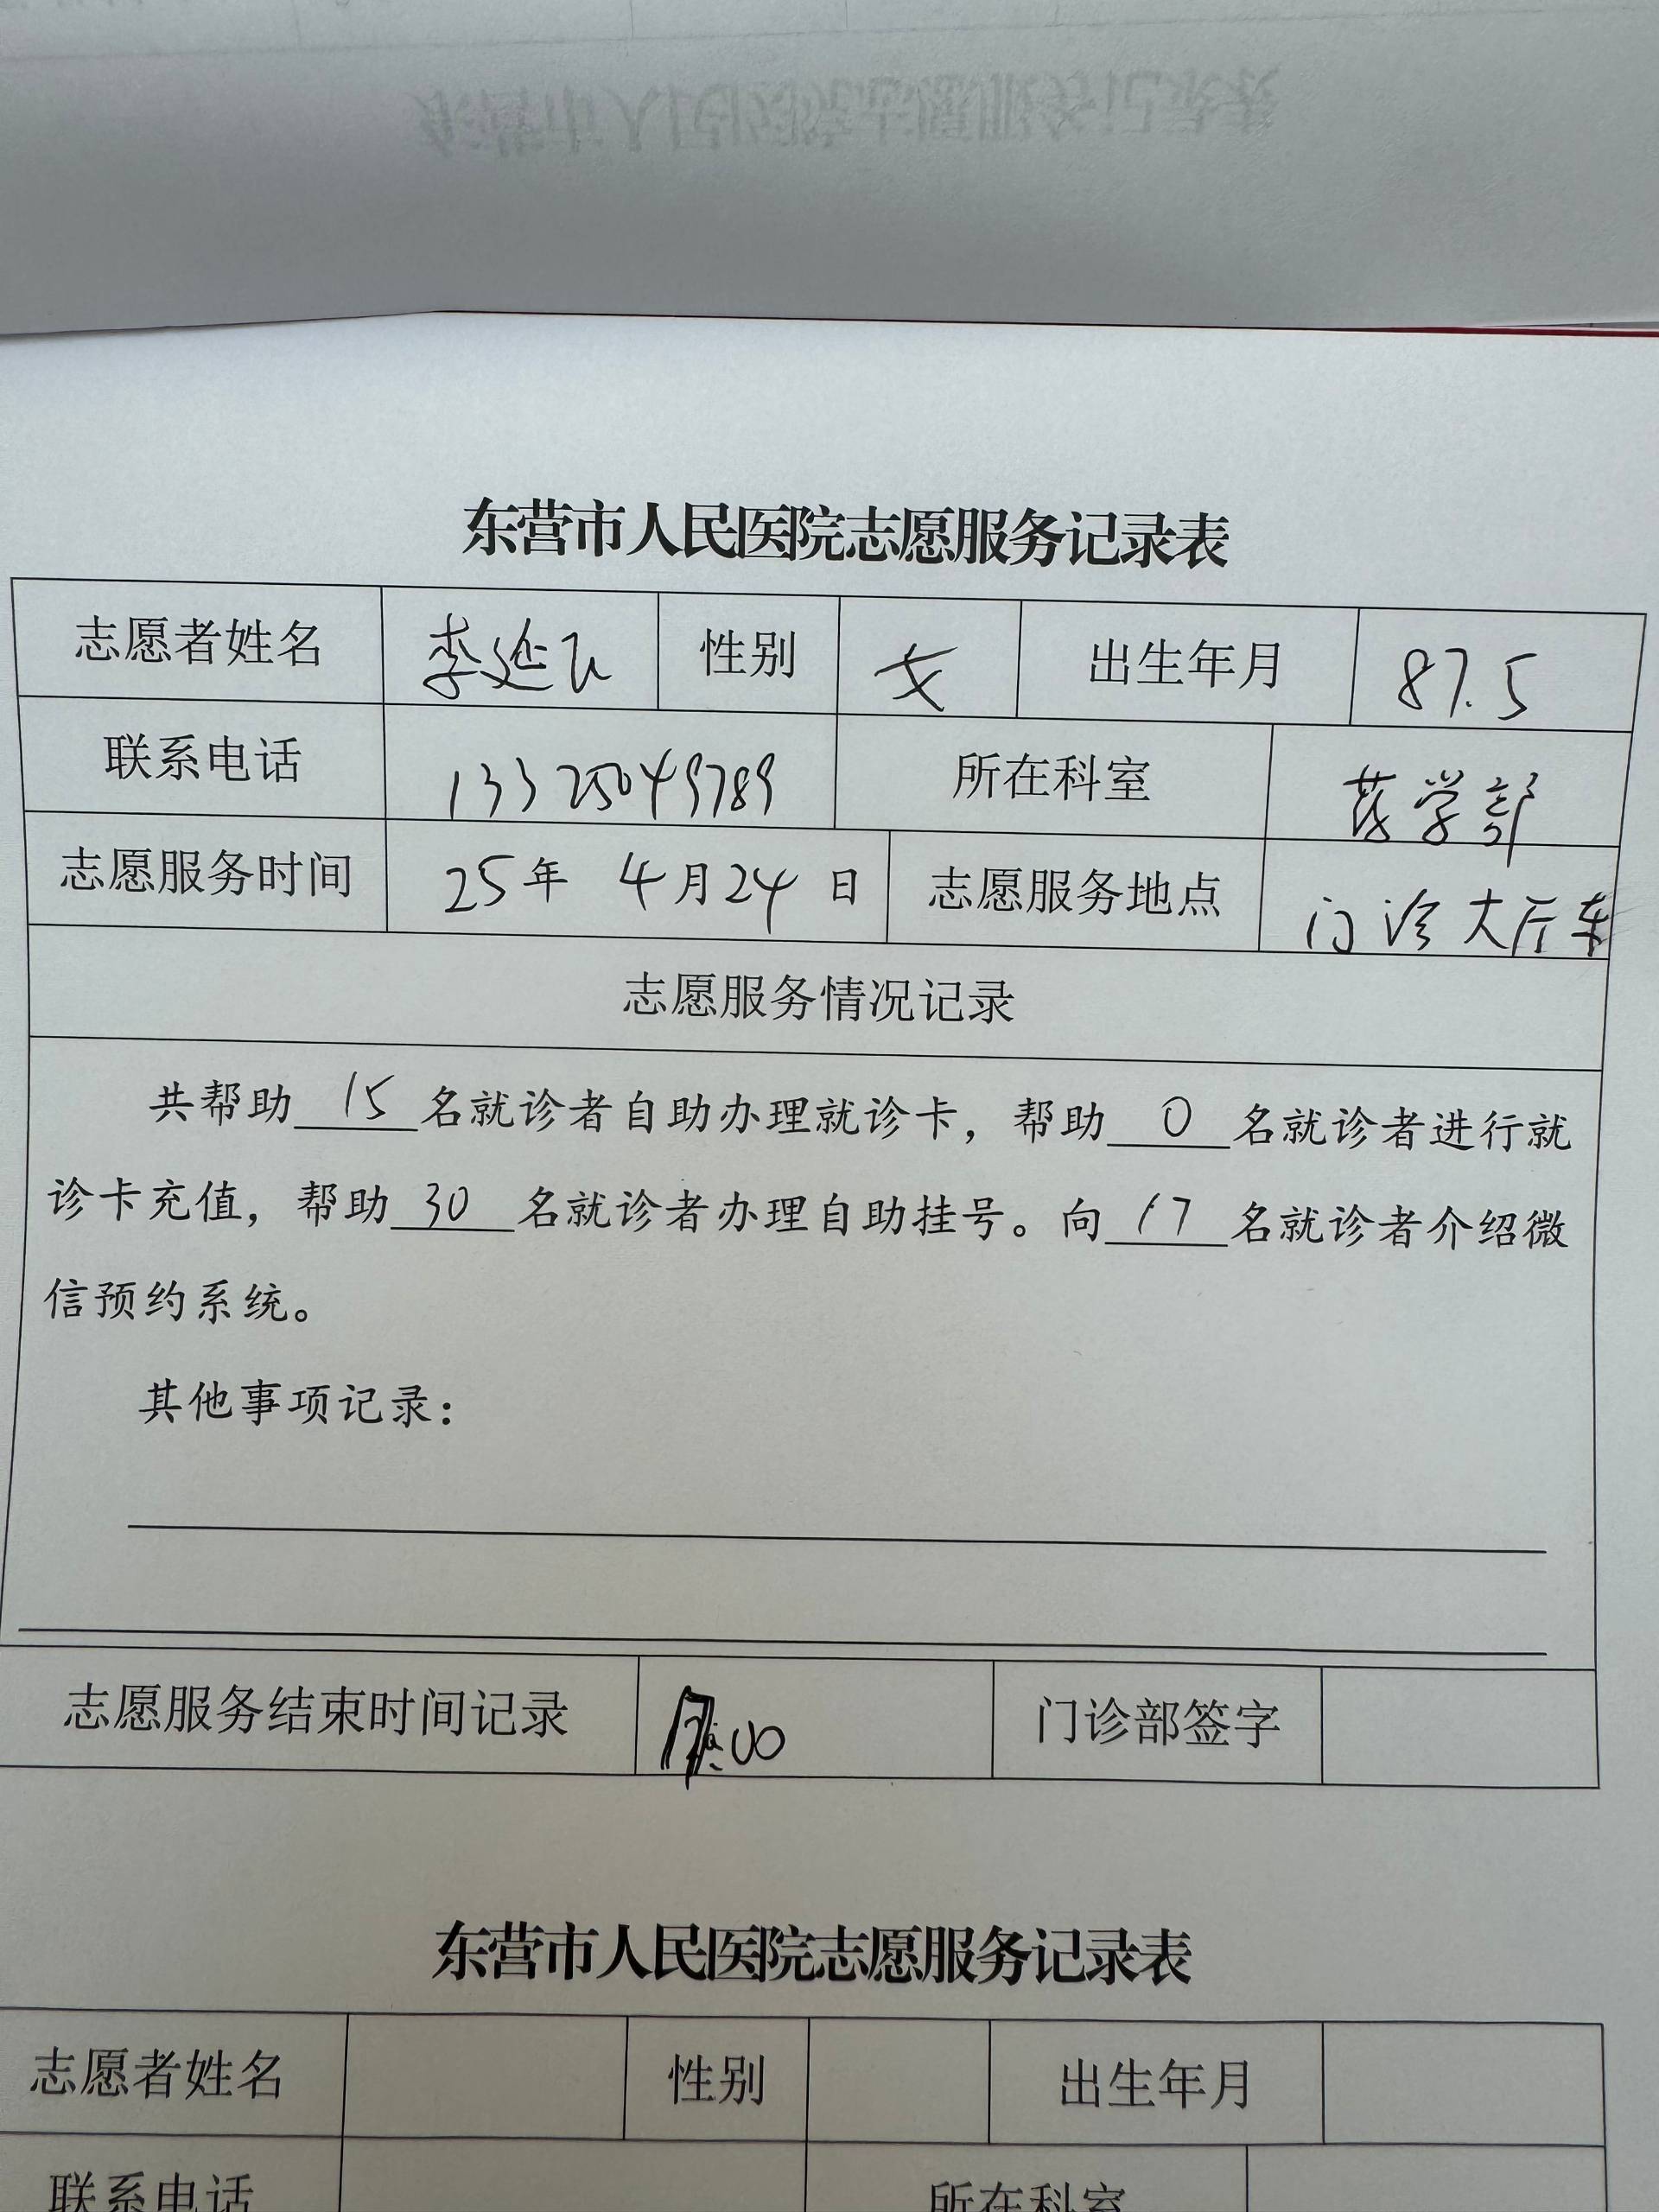 东营市人民医院志愿服务记录表
志愿者姓名 李延 性别 女 出生年月 87.5
联系电话 13325049789 所在科室 药学部
志愿服务时间 25年 4月24日 志愿服务地点 门诊大厅东
志愿服务情况记录
共帮助 15 名就诊者自助办理就诊卡，帮助 0 名就诊者进行就
诊卡充值，帮助 30 名就诊者办理自助挂号。向 17 名就诊者介绍微
信预约系统。
其他事项记录：
志愿服务结束时间记录 :00 门诊部签字
东营市人民医院志愿服务记录表
志愿者姓名 性别 出生年月
联系电话 所在科室